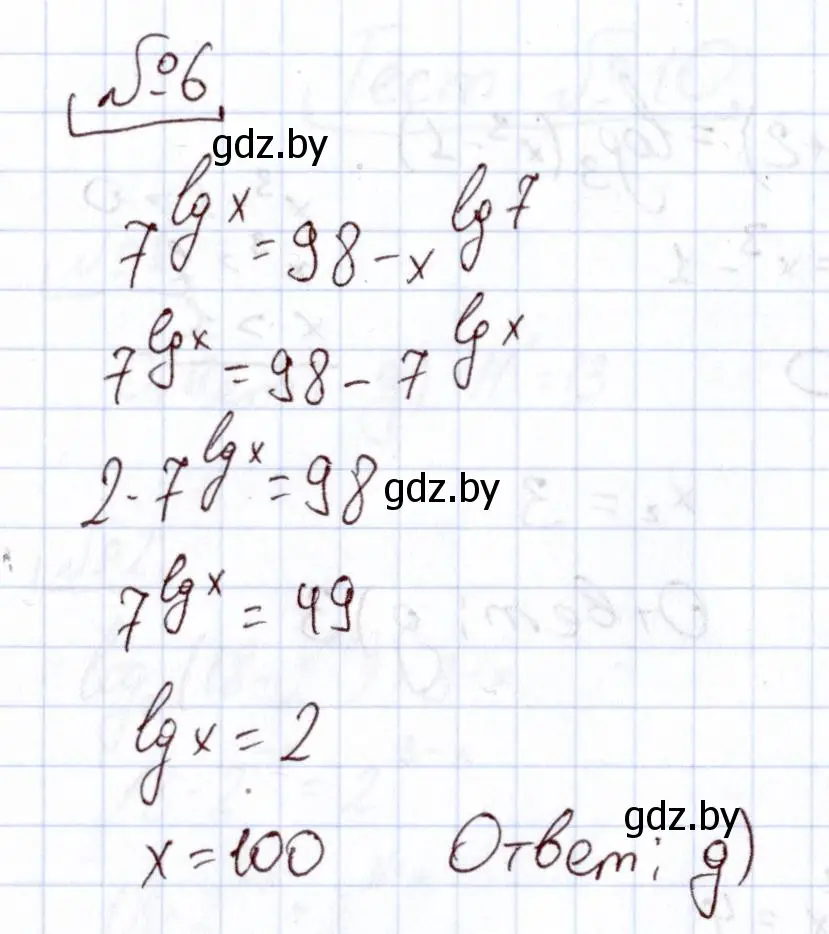 №6
gdz.by
7^{lg x} = 98 - x^{lg 7}
7^{lg x} = 98 - 7^{lg x}
2 · 7^{lg x} = 98
gdz.by
7^{lg x} = 49
lg x = 2
gdz.by
x = 100 Ответ: g)